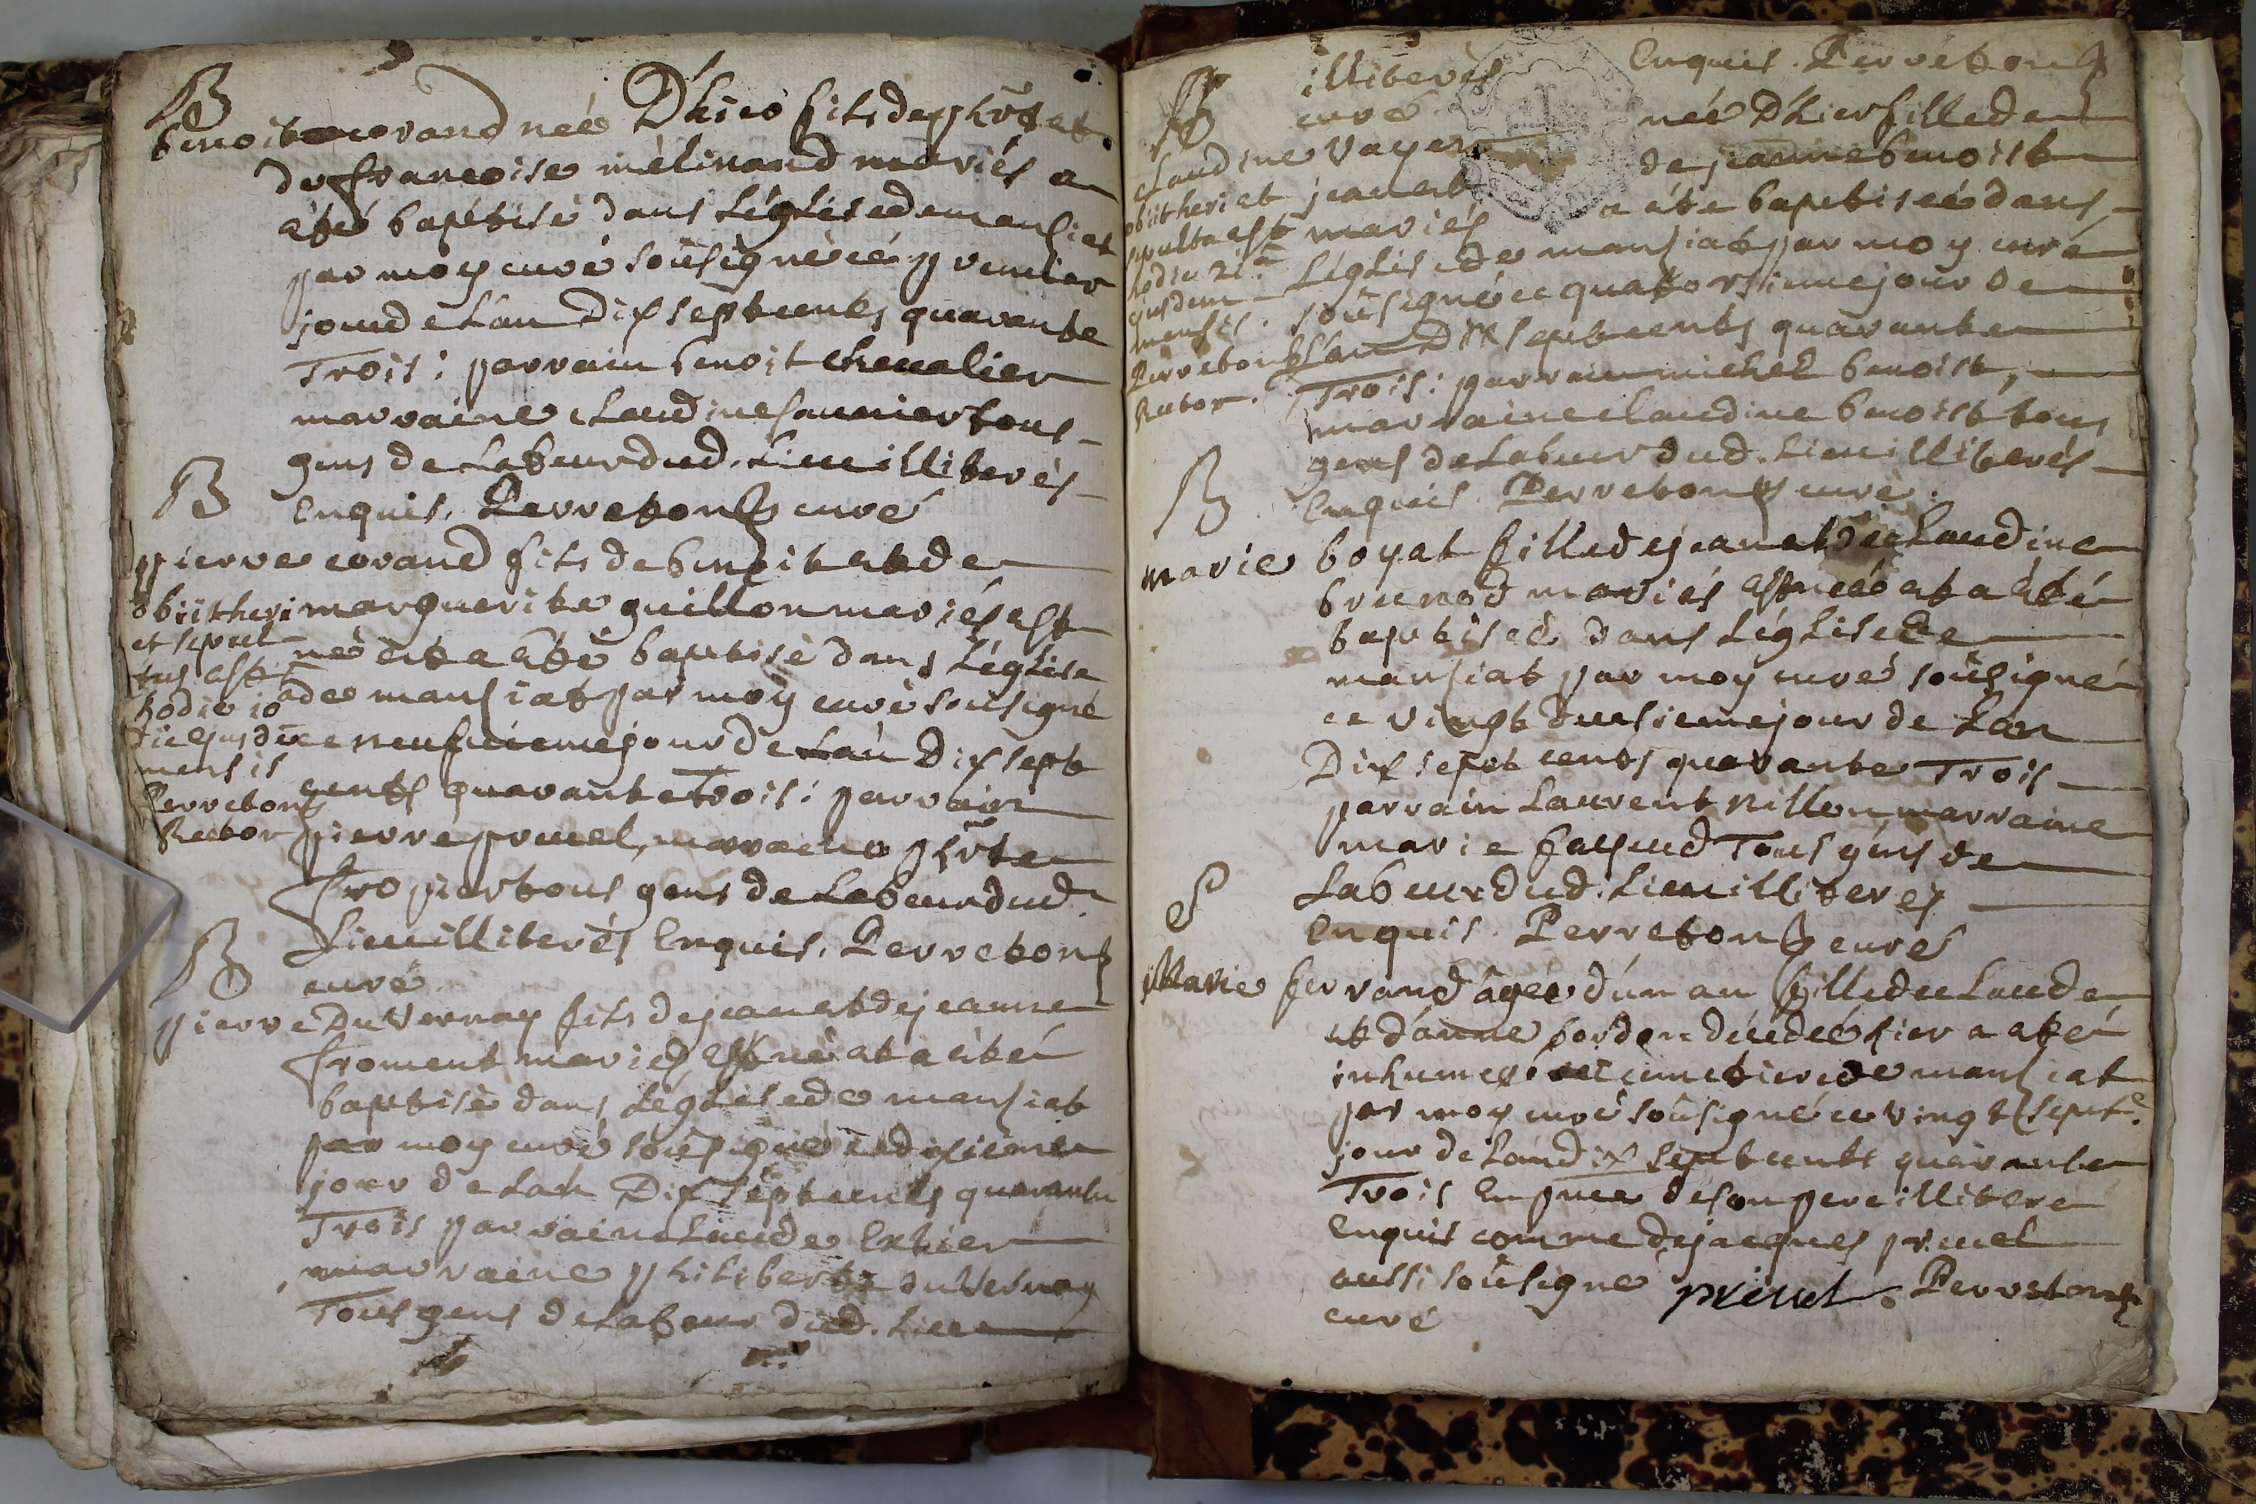 B
benoit morand neé D'hier fils de phrt et
de françoise mélinand mariés a
àtté baptisé dans L'églisedemanziat
par moy curé soûsigné ce premier
jour de L'an Dix sept cents quarante
Trois: parrain benoit chevalier
marraine claudine saunier tous
gens de Labeur dud. Lieu illiterés
Enquis. Perreton curé
B
pierre corand fils de benoit et de
marguerite guillon mariés est
né et a àtté baptisé dans L'églisse
de manziat par moy curé soûsigné
ce neufuiemejour de L'an Dix sept
cents quarante Trois: parrain
pierre pruel, marraine phrte
Tropier tous gens de Labeur dud.
Lieu illiterés Enquis. Perreton
curé
obiit heri
et sepul
tus est
hodie 10a
die ejusdem
mensis
Perreton
Rector
B
pierre Duvernay fils de jean et de jeanne
froment mariés est né et a àtté
baptisé dans L'églisede manziat
par moy curé soûsigné ce dixieme
jour de L'an Dix sept cents quarante
Trois parrain claude
marraine philiberte duvernay
Tous gens de Labeur dud. Lieu
illiterés Enquis. Perreton
curé
B
claudine Vayer neé D'hier fille de
jean et de jeanne benoist
mariés a àtte baptiseé dans
L'églisede manziat par moy curé
soûsigné ce quatorsiemejour de
L'an Dix sept cents quarante
Trois: parrain michel benoist,
marraine claudine benoist tous
gens de Labeur dud. Lieu illiterés
Enquis Perreton curé.
obiit heri et
sepulta est
hodie 21a
ejusdem
mensis.
Perreton
Rector.
B
marie boyat fille de jean et de claudine
brunod mariés est neé et a àtté
baptiseé dans L'églisede
manziat par moy curé soûsigné
ce vingt deusiemejour de L'an
Dix sept cents quarante Trois
parrain Laurent nillon marraine
marie Tous gens de
Labeur dud. Lieu illiteres
Enquis. Perreton curé
S
Marie ferrand âgeé d'un an fille de claude
et d'anne bordon décedeé hier a atté
inhumeé au cimetiere de manziat
par moy curé soûsigné ce vingt septe.
jour de L'an dix sept cents quarante
Trois En pnce de son pere illiteré
Enquis comme de jacques pruel
aussi soûsigné pruel. Perreton
curé